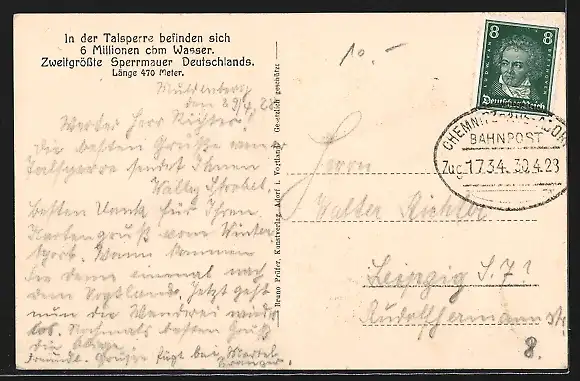 In der Talsperre befinden sich
6 Millionen cbm Wasser.
Zweitgrößte Sperrmauer Deutschlands.
Länge 470 Meter.
Muldenberg
den 29/4. 28
Werter Herr Richter!
die besten Grüße von der
Talsperre sendet Ihnen
Willy Strobel
besten Dank für Ihren
Kartengruß vom Winter
sport. Wann kommen
Sie denn einmal nach
dem Vogtlande. Jetzt geht
nun die Wanderei wieder
los. Nochmals besten Gruß
Freundl. Grüsse fügt bei
Bruno Prüfer, Kunstverlag, Adorf i. Vogtland. Gesetzlich geschützt
10.-
Herrn
Walter Richter
Leipzig S. 7!
Rudolfhermann str.
8.
8 8
LUDWIG
Deutsches Reich
CHEMNITZ
BAHNPOST
Zug 1734 30.4.28